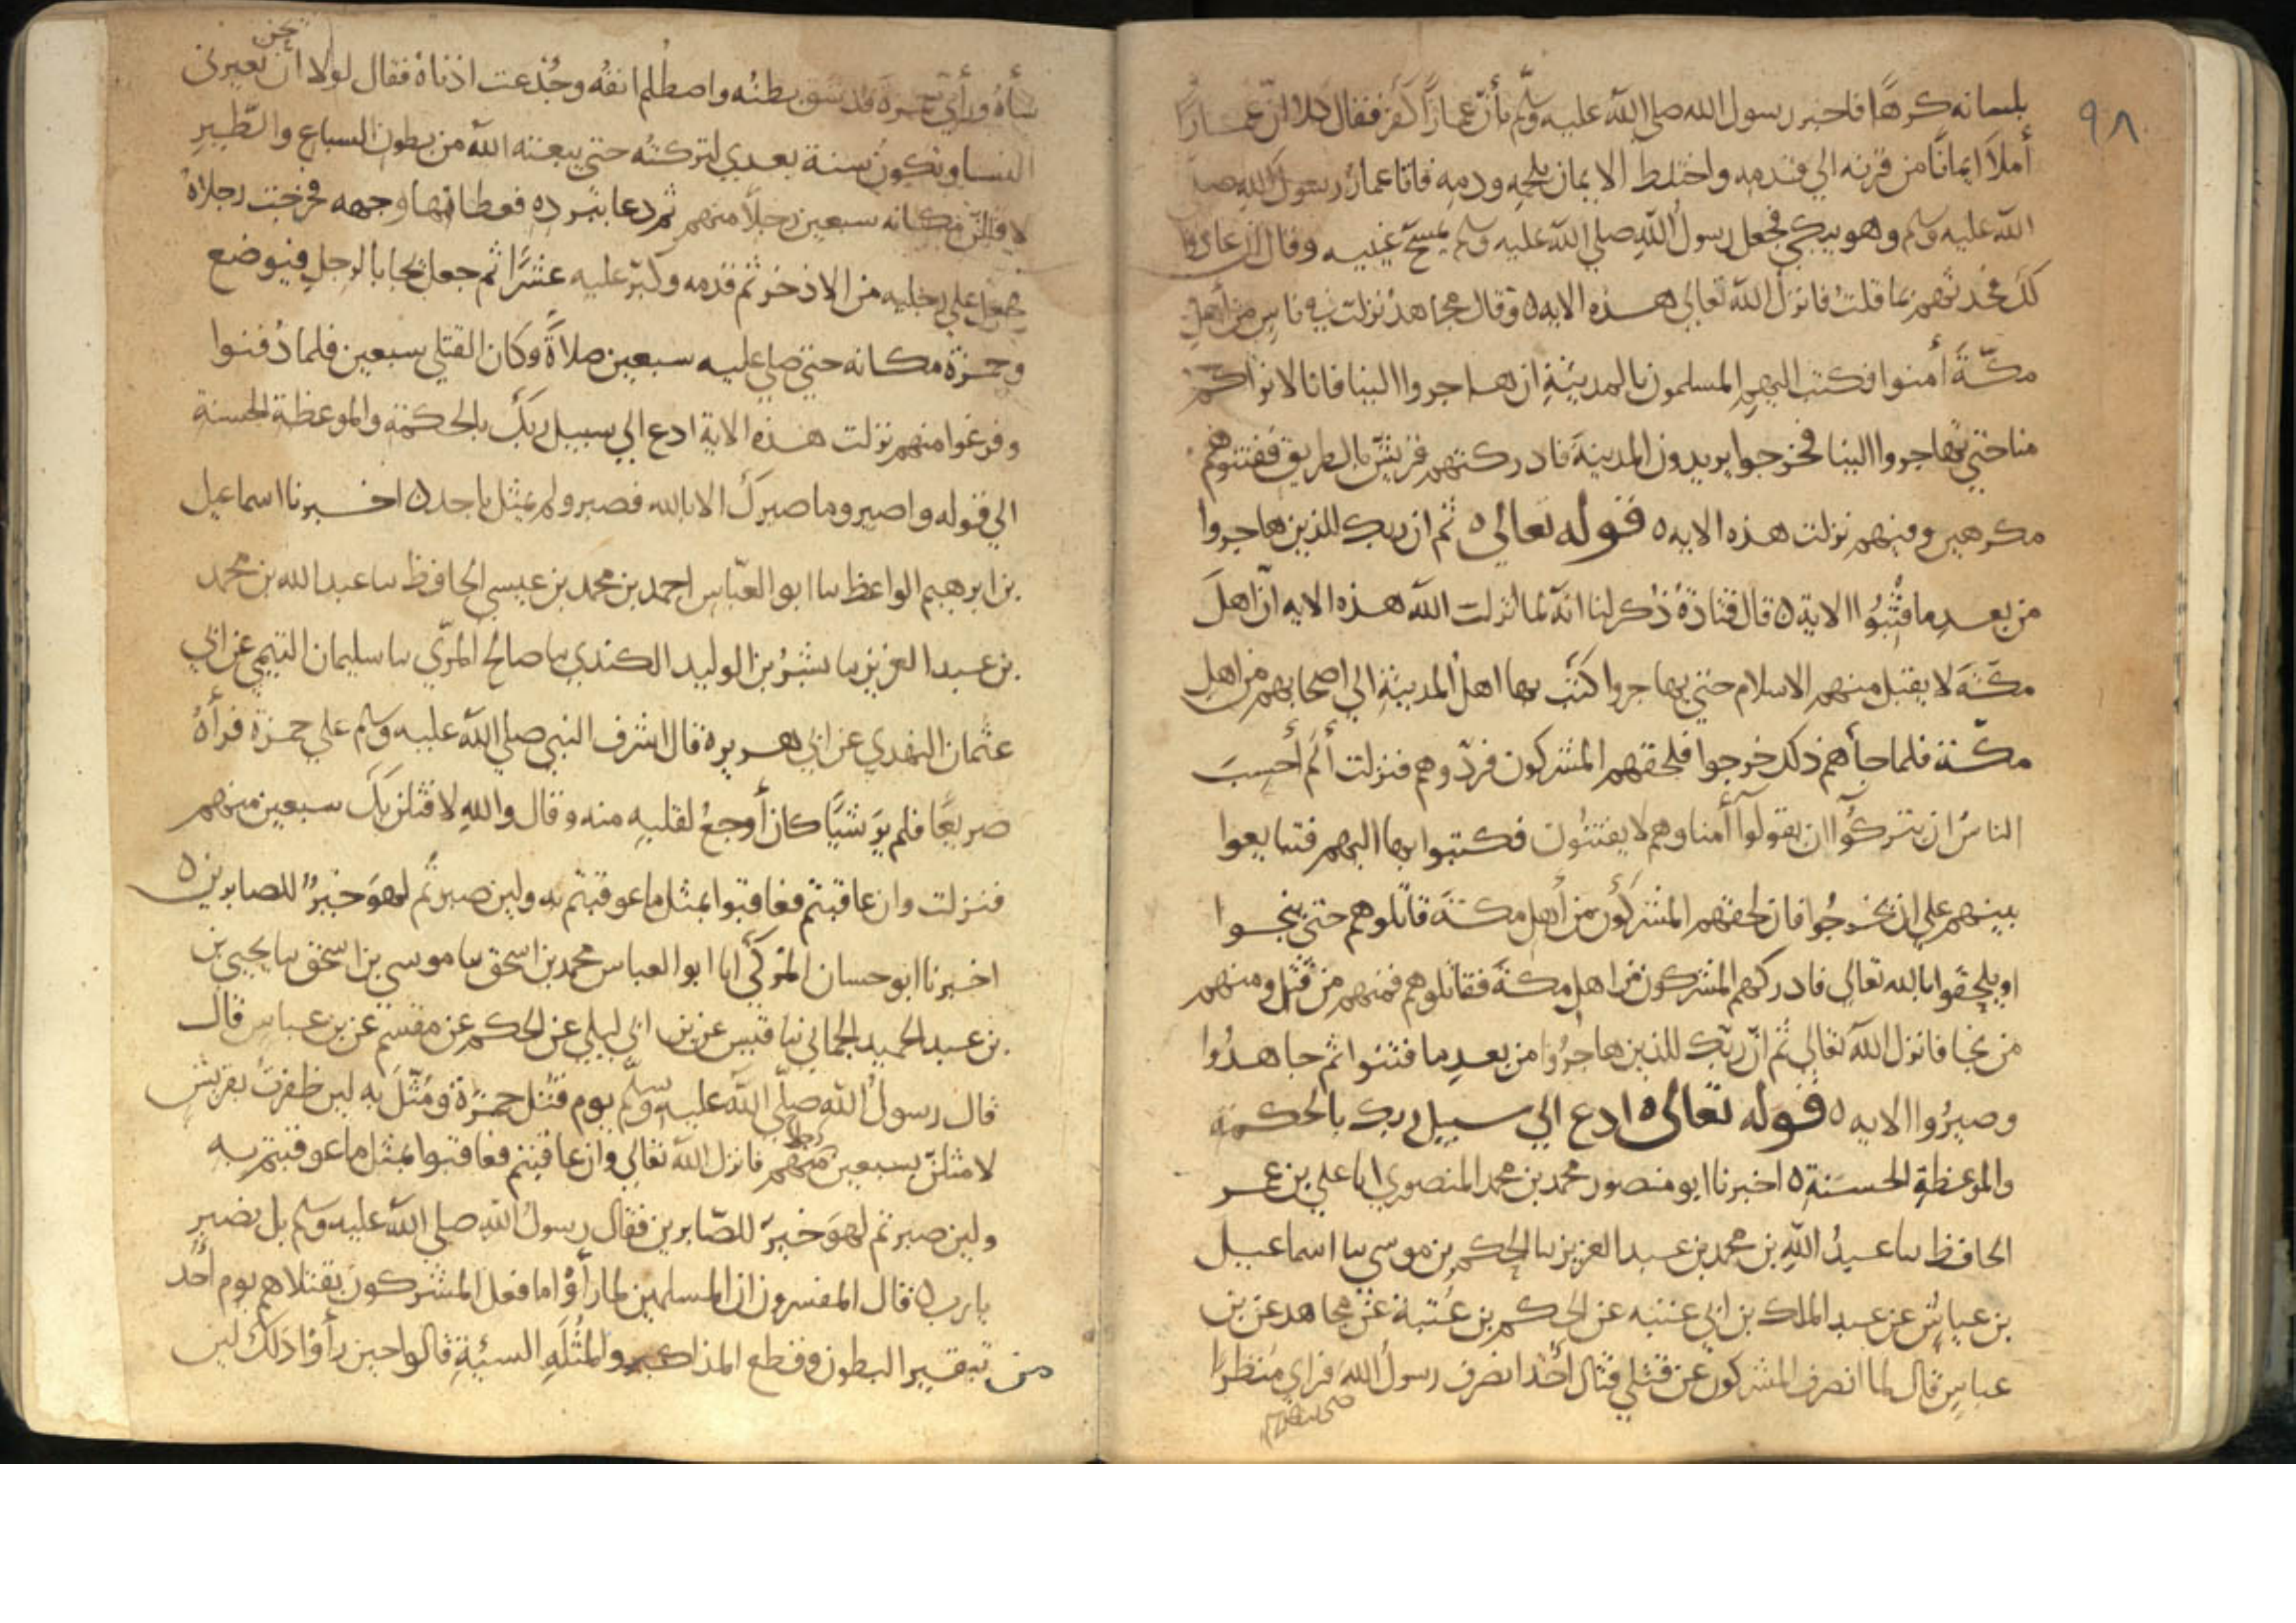 ٩٨
بلسانه كرهًا فاخبر رسول الله صلى الله عليه وسلم بأنّ عمارًا كفر فقال كلا ان عمارًا
أملأ ايمانًا من قرنه الي قدمه واختلط الايمان بلحمه ودمه فاتا عمار رسول الله صلى
الله عليه وسلم وهو يبكي فجعل رسول الله صلي الله عليه وسلم يمسح عينيه وقال ان عادوا
لك فعد لهم بما قلت فانزل الله تعالي هذه الايه ٥ وقال مجاهد نزلت في ناس من أهل
مكّة أمنوا فكتب اليهم المسلمون بالمدينة ان هاجروا الينا فانا لا نراكم
منا حتي تهاجروا الينا فخرجوا يريدون المدينة فادركتهم قريش بالطريق ففتنوهم
مكرهين وفيهم نزلت هذه الايه ٥ قوله تعالي ٥ ثم ان ربك للذين هاجروا
من بعد ما فتنوا الاية ٥ قال قتادة ذُكر لنا انه لما انزلت الله هذه الايه انّ اهل
مكّة لا يقبل منهم الاسلام حتي يهاجروا كتب بها اهل المدينة الي اصحابهم من اهل
مكّة فلما جأهم ذلك خرجوا فلحقهم المشركون فردّوهم فنزلت ألم أحسب
الناسُ ان يتركوآ ان يقولوآ أمنا وهم لا يفتنون فكتبوا بها اليهم فتبايعوا
بينهم علي ان يخرجوا فان لحقهم المشركون من أهل مكة قاتلوهم حتي ينجوا
او يلحقوا بالله تعالي فادركهم المشركون من اهل مكة فقاتلوهم فمنهم من قُتل ومنهم
من نجا فانزل الله تعالي ثم انّ ربّك للذين هاجروا من بعد ما فتنوا ثم جاهدُوا
وصبرُوا الايه ٥ قوله تعالى ٥ ادع الي سبيل ربك بالحكمة
والموعظة الحسَنة ٥ اخبرنا ابو منصور محمد بن محمد المنصوري انا علي بن عمر
الحافظ نا عبدُ الله بن محمد بن عبد العزيز نا الحكم بن موسي نا اسماعيل
بن عياش عن عبد الملك بن ابي عتبه عن الحكم بن عُتبة عن مجاهد عن بن
عباس قال لما انصرف المشركون عن قتلي قتال أحُد انصرف رسول الله فراي منظرًا
صلى الله عليه وسلم
نحن
سأهُ ورأي حمزة قد شق بطنُه واصطُلم انفُه وجُذعت اذناهُ فقال لولا ان تعيرني
النسا وتكون سنة بعدي لتركتُه حتي يبعثه الله من بطون السباع والطّير
لاقتلن مكانه سبعين رجلًا منهم ثم دعا ببرده فغطا بها وجهه فخرجت رجلاهُ
فجعل علي رجليه من الاذخر ثم قدمه وكبّر عليه عشرًا ثم جعل يجا بالرجل فيوضع
وحمزة مكانه حتي صلي عليه سبعين صلاةً وكان القتلي سبعين فلما دُفنوا
وفرغوا منهم نزلت هذه الاية ادع الي سبيل ربك بالحكمة والموعظة الحسنة
الي قوله واصبر وما صبرك الا بالله فصبر ولم يمثل باحد ٥ اخبرنا اسماعيل
بن ابرهيم الواعظ نا ابو العبّاس احمد بن محمد بن عيسي الحافظ نا عبد الله بن محمد
بن عبد العزيز نا بشرُ بن الوليد الكندي نا صالح المرّي نا سليمان التيمي عن ابي
عثمان النهدي عن ابي هريره قال اشرف النبي صلي الله عليه وسلم علي حمزة فرأهُ
صريعًا فلم يرَ شيًا كان أوجعُ لقلبه منه وقال والله لاقتلن بك سبعين منهم
فنزلت وان عاقبتم فعاقبوا بمثل ما عوقبتم به ولين صبرتُم لهوَ خيرٌ للصابرين ٥
اخبرنا ابو حسان المزكّي انا ابو العباس محمد بن اسحق نا موسي بن اسحق نا يحيي بن
بن عبد الحميد الحماني نا قيس عن بن ابي ليلي عن الحكم عن مقسم عن بن عباس قال
قال رسولُ الله صلّي الله عليه وسلّم يوم قُتل حمزة ومُثّل به لين ظفرتُ بقريش
لامثلنّ بسبعين رجلا منهم فانزل الله تعالي وان عاقبتم فعاقبوا بمثل ما عوقبتم به
ولين صبرتم لهوَ خيرٌ للصّابرين فقال رسولُ الله صلي الله عليه وسلم بل نصبر
يا رب ٥ قال المفسرون ان المسلمين لما رأوا ما فعل المشركون بقتلاهم يوم أحُد
من تبقير البطون وقطع المذاكير والمُثلَه السيئة قالوا حين رأوا ذلك لين